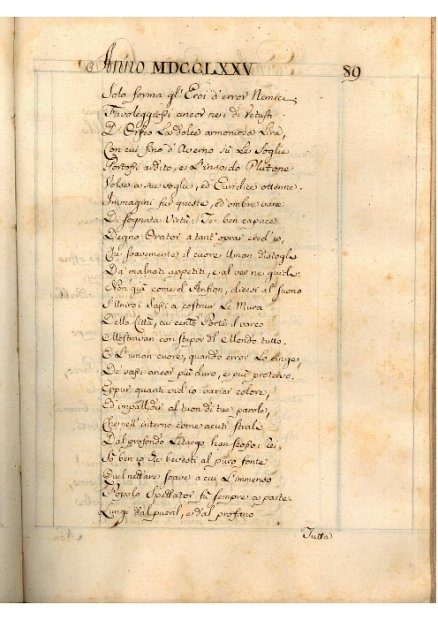 Anno MDCCLXXV 89
Sola forma gl'Eroi d'error Nemici;
Favoleggiossi ancor nesi di Vetusti
D'Orfeo La dolce armoniosa Lira,
Con cui sino d'Averno su Le Soglie
Portossi ardito, e L'insoido Plutone
Volse a sue voglie, ed Euridice ottenne.
Immagini fur queste, ed ombre vane
Di sognata Virtù. Te ben capace
Degno Orator a tant'oprar cred'io,
Che soavemente il cuore Uman distogli
Da' malnati appetiti, e al ver ne guidi.
Non già come d'Anfion, dicesi al suono
S'Uniro i Sassi a costruir Le Mura
Della Città, cui cento Porte il varco
Mostravan con stupor del Mondo tutto.
E L'uman cuore, quando error Lo cinge,
De' sassi ancor più duro, e più protervo.
Eppur quanti vid'io variar colore,
Ed impallidir al tuon di tue parole,
Che nell'interno come acuti strali
Dal profondo Letargo han scosso i Rei,
So ben io che bevesti al puro fonte
Quel nettare soave a cui L'immenso
Popolo Spettator fu sempre a parte
Lungi dal pueril, e dal profano
Tutta